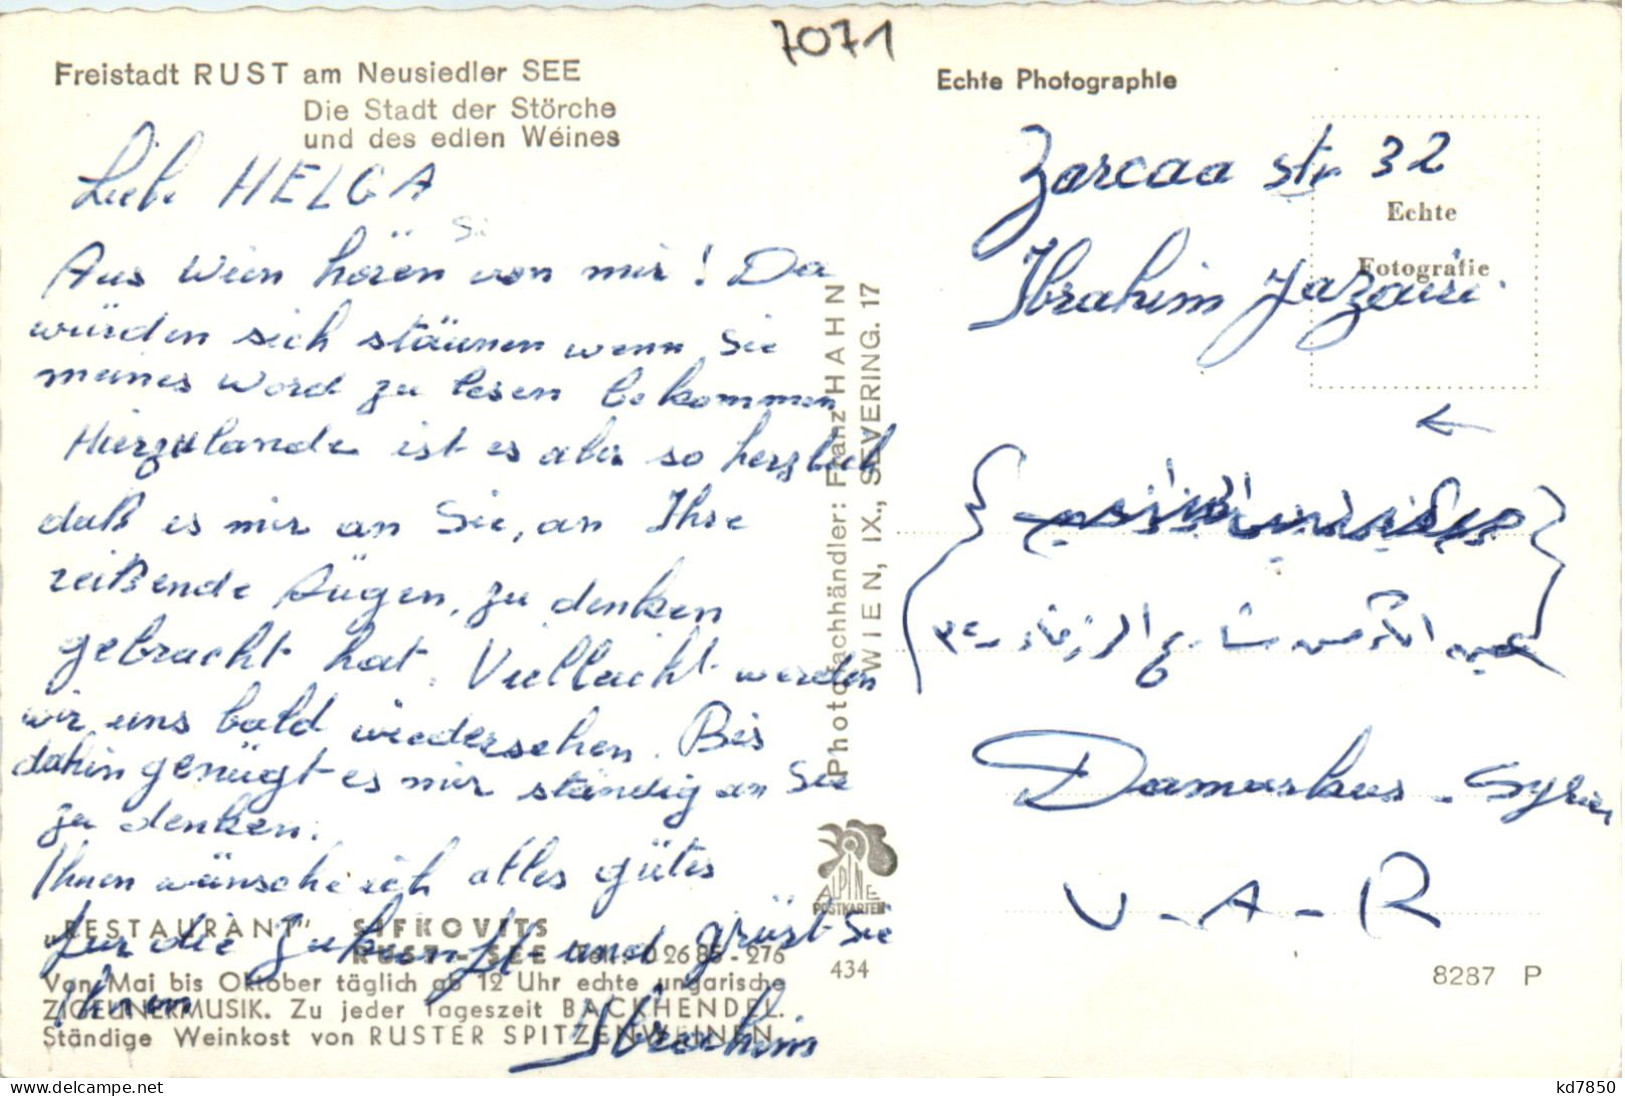 7071
Freistadt RUST am Neusiedler SEE
Die Stadt der Störche
und des edlen Weines
Liebe HELGA
Aus Wien hören Sie von mir! Da
würden sich stäunen wenn Sie
meines Word zu lesen bekommen
Hierzulande ist es aber so herzlich
daß es mir an Sie, an Ihre
reißende Äügen, zu denken
gebracht hat. Viellacht werden
wir uns bald wiedersehen. Bis
dahin genügt es mir ständig an Sie
zu denken.
Ihnen wünsche ich alles gütes
für die Zukunft und grüst Sie
Ihnen
Ibrahim
„RESTAURANT" SIFKOVITS
RUST - SEE Tel. 0 26 85 - 276
Von Mai bis Oktober täglich ab 12 Uhr echte ungarische
ZIGEUNERMUSIK. Zu jeder Tageszeit BACKHENDEL.
Ständige Weinkost von RUSTER SPITZENWEINEN
Photofachhändler: Franz HAHN
WIEN, IX., SEVERING. 17
ALPINE
POSTKARTEN
434
Echte Photographie
Echte
Fotografie
Zarcaa str 32
Ibrahim Jazairi
←
Damaskus - Syrien
U - A - R
8287 P
kd7850